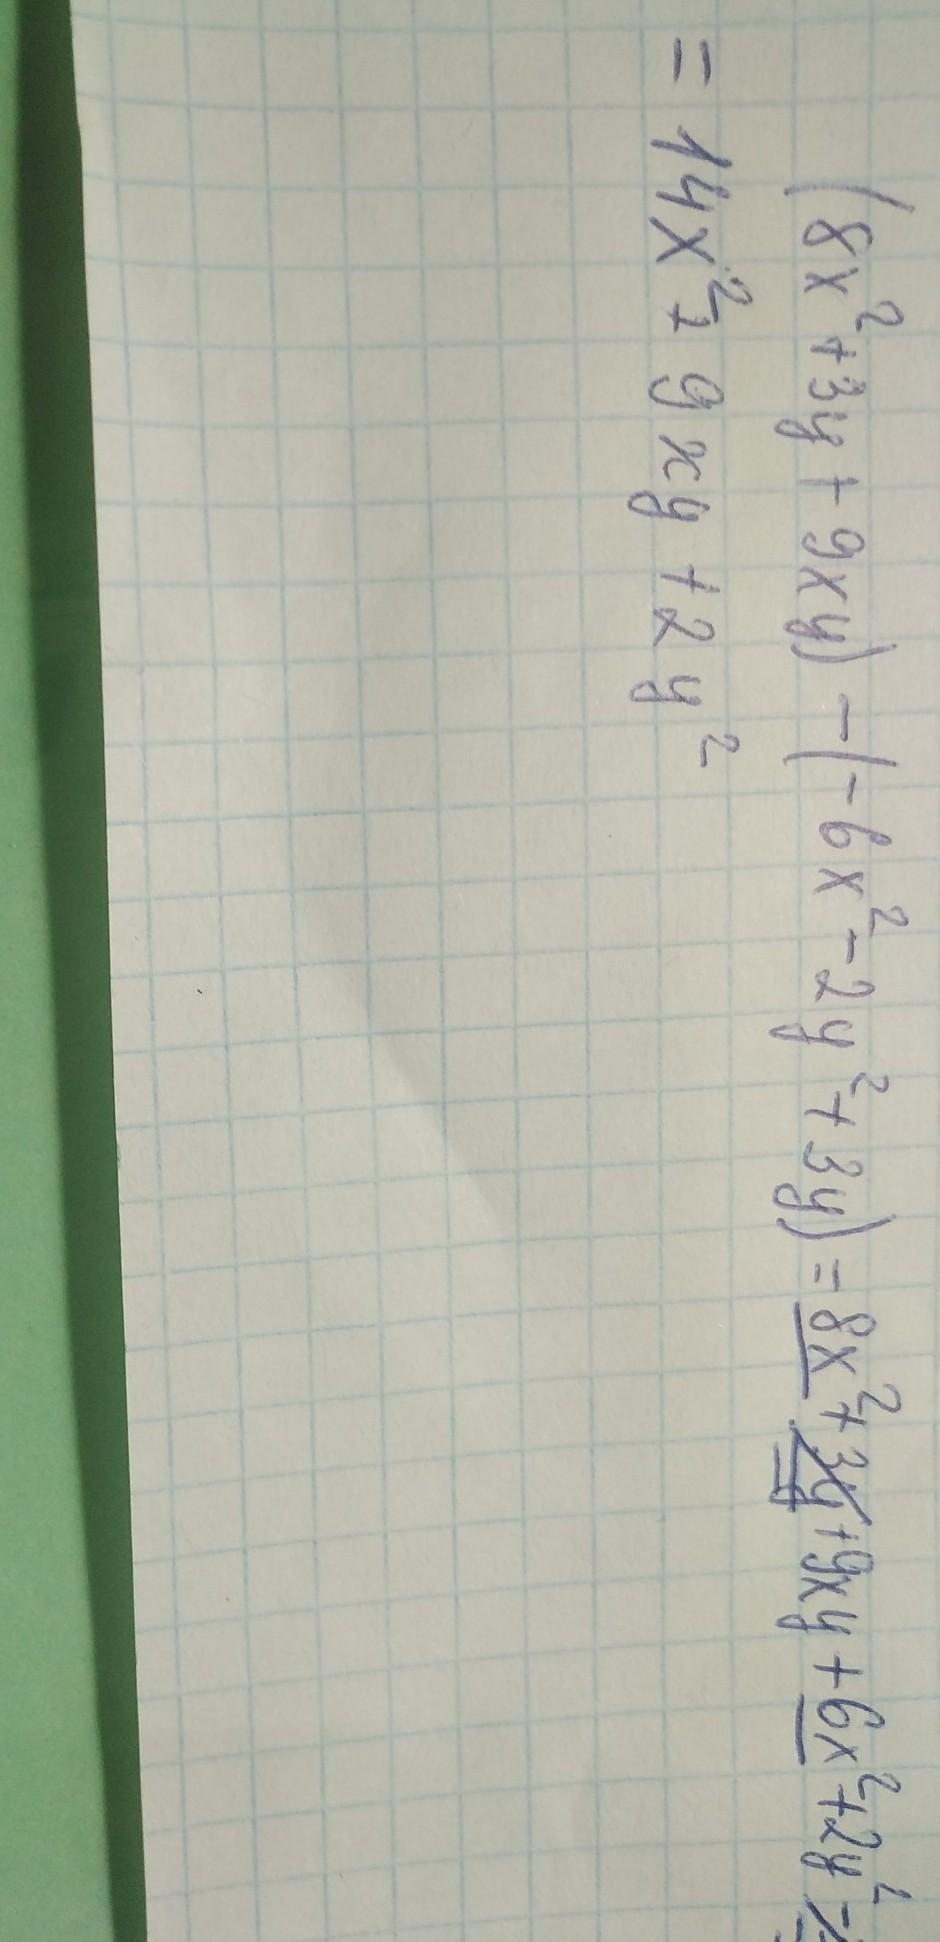 (8x²+3y+9xy)-(-6x²-2y²+3y)=8x²+3y+9xy+6x²+2y²-
=14x²+9xy+2y²